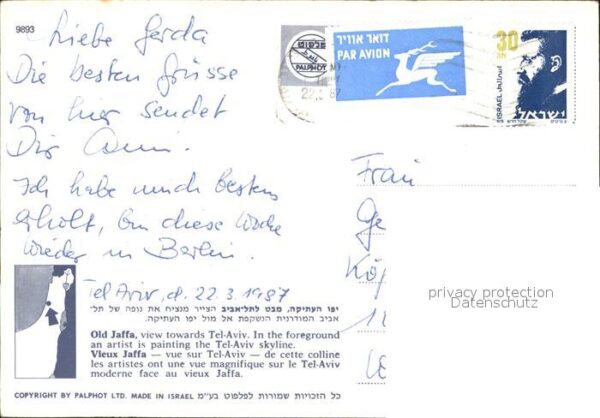 9893
Liebe Gerda
Die besten Grüsse
von hier sendet
Dir
Ich habe mich bestens
erholt, bin diese Woche
wieder in Berlin.
Tel Aviv, d. 22.3.1987
פלפוט
PALPHOT
דואר אוויר
PAR AVION
30
ISRAEL اسرائيل
ישראל
Frau
Ge
Kö
privacy protection
Datenschutz
יפו העתיקה, מבט לתל־אביב הצייר מנציח את נופה של תל־
אביב המודרנית הנשקפת אל מול יפו העתיקה.
Old Jaffa, view towards Tel-Aviv. In the foreground
an artist is painting the Tel-Aviv skyline.
Vieux Jaffa — vue sur Tel-Aviv — de cette colline
les artistes ont une vue magnifique sur le Tel-Aviv
moderne face au vieux Jaffa.
COPYRIGHT BY PALPHOT LTD. MADE IN ISRAEL כל הזכויות שמורות לפלפוט בע"מ